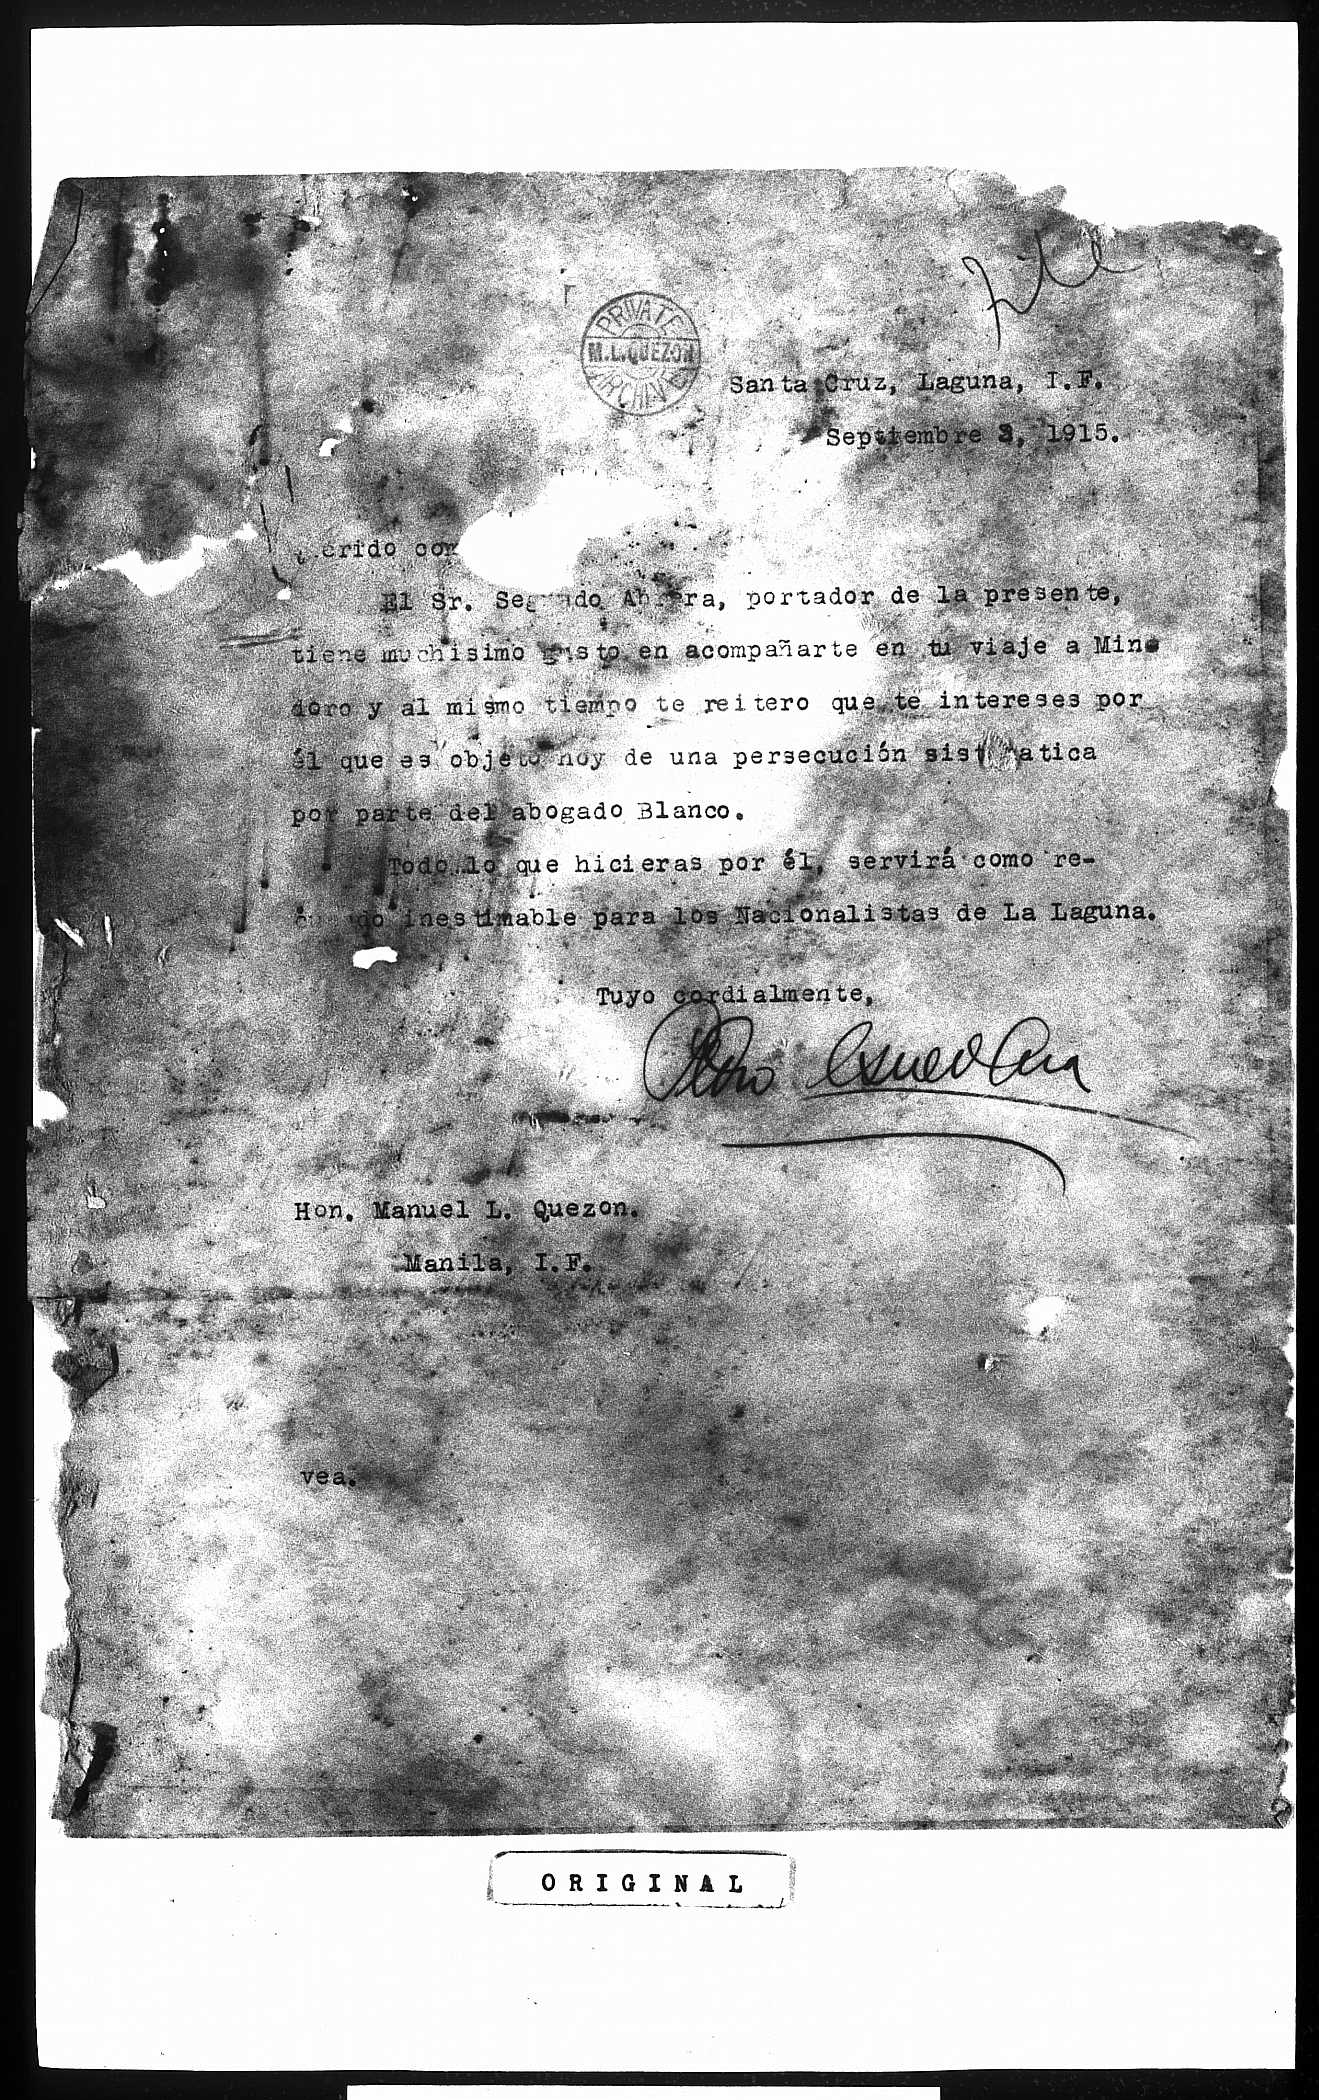 File
PRIVATE
M.L.QUEZON
ARCHIVES
Santa Cruz, Laguna, I.F.
Septiembre 3, 1915.
El Sr. portador de la presente,
tiene muchisimo gusto en acompañarte en tu viaje a Min
doro y al mismo tiempo te reitero que te intereses por
él que es objeto hoy de una persecución
por parte del abogado Blanco.
Todo lo que hicieras por él, servirá como re-
inestimable para los Nacionalistas de La Laguna.
Tuyo cordialmente,
Pedro Guevara
Hon. Manuel L. Quezon.
Manila, I.F.
vea.
ORIGINAL